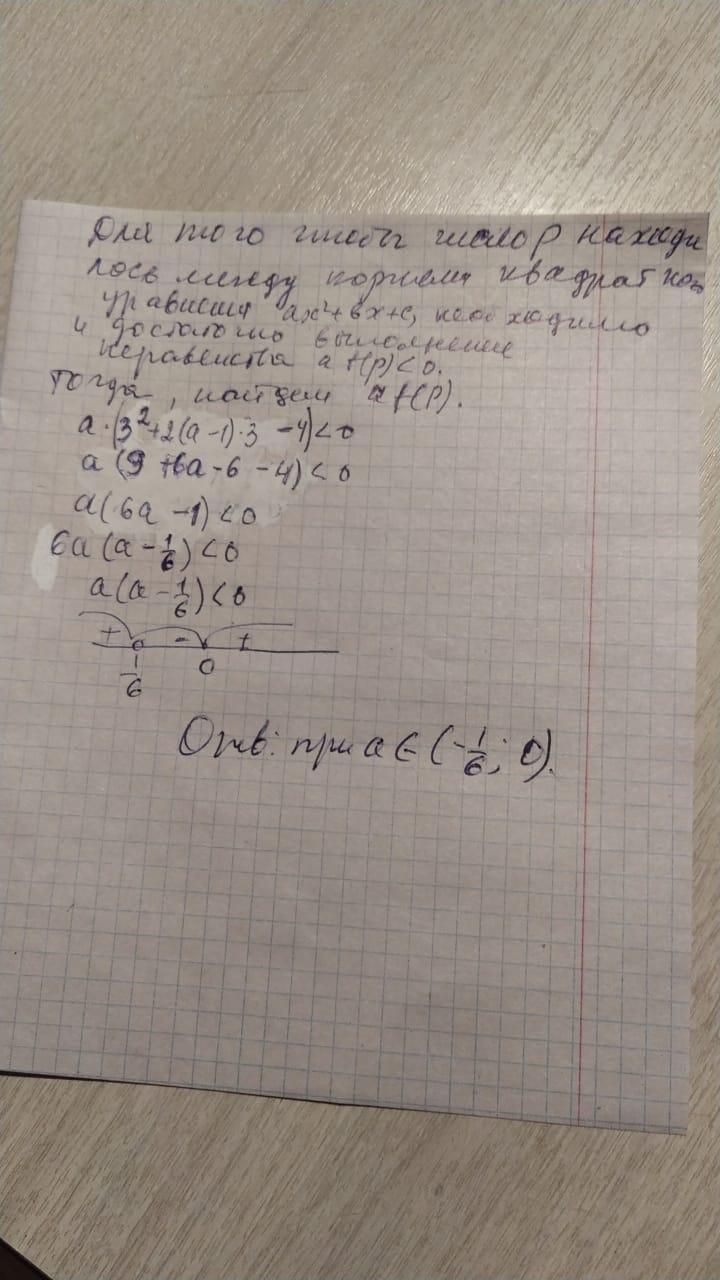 Для того чтобы число p находи
лось между корнями квадратного
уравнения ax²+bx+c, необходимо
и достаточно выполнение
неравенства a f(p)<0.
Тогда, найдем a f(p).
a·(3²+2(a-1)·3 -4)<0
a (9 +6a-6 -4)<0
a(6a -1)<0
6a(a-1/6)<0
a(a-1/6)<0
+ - +
1/6 0
Отв: при a ∈ (-1/6; 0).